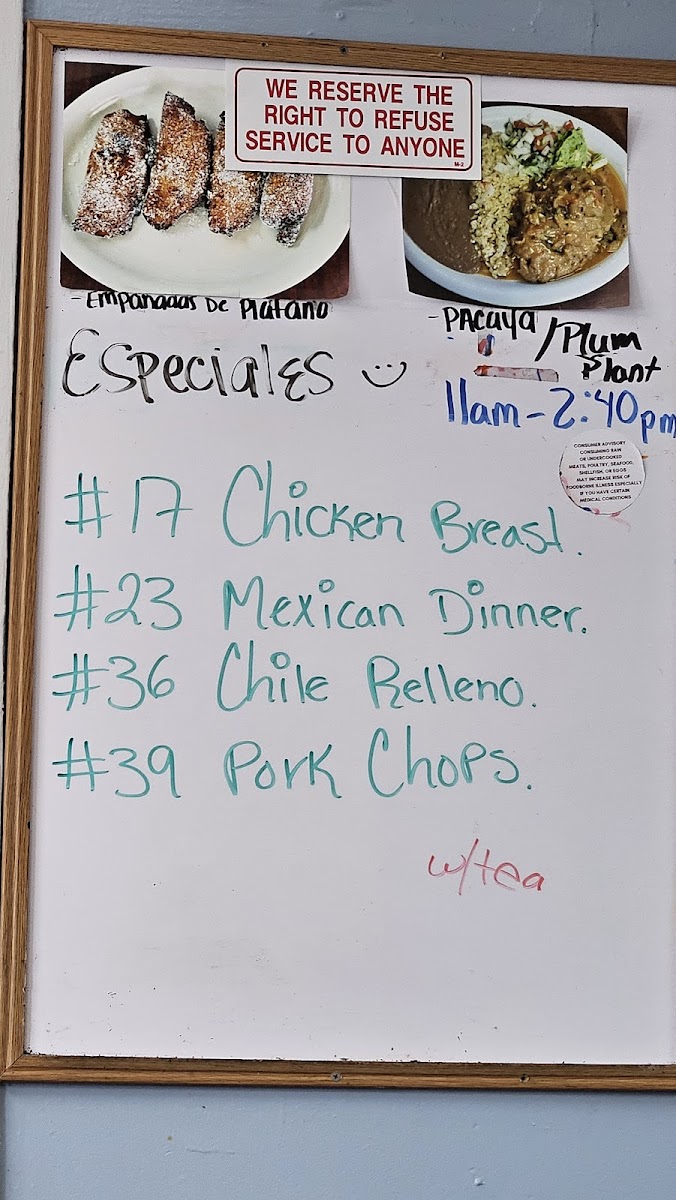 WE RESERVE THE
RIGHT TO REFUSE
SERVICE TO ANYONE
M-2
- Empanadas De Platano
- PAcaya /Plum
Plant
Especiales
11am - 2:40pm
CONSUMER ADVISORY
CONSUMING RAW
OR UNDERCOOKED
MEATS, POULTRY, SEAFOOD,
SHELLFISH, OR EGGS
MAY INCREASE RISK OF
FOODBORNE ILLNESS ESPECIALLY
IF YOU HAVE CERTAIN
MEDICAL CONDITIONS
#17 Chicken Breast.
#23 Mexican Dinner.
#36 Chile Relleno.
#39 Pork Chops.
w/tea